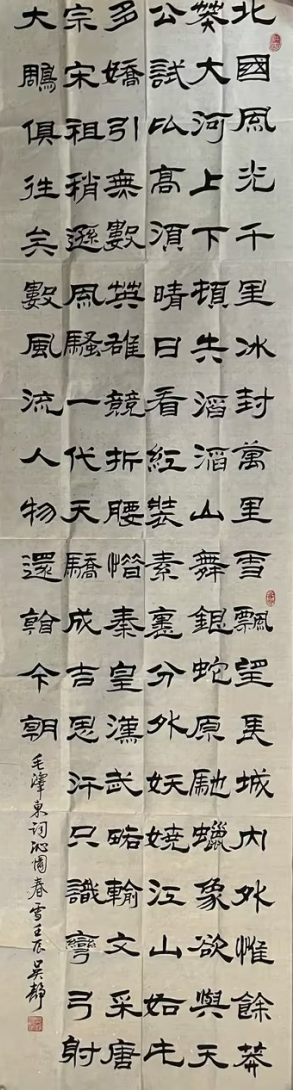 北國風光千里冰封萬里雪飄望長城内外惟餘莽
莽大河上下頓失滔滔山舞銀蛇原馳蠟象欲與天
公試比高須晴日看紅裝素裹分外妖嬈江山如此
多嬌引無數英雄競折腰惜秦皇漢武略輸文采唐
宗宋祖稍遜風騷一代天驕成吉思汗只識彎弓射
大鵰俱往矣數風流人物還看今朝
毛澤東詞沁園春雪壬辰吳靜